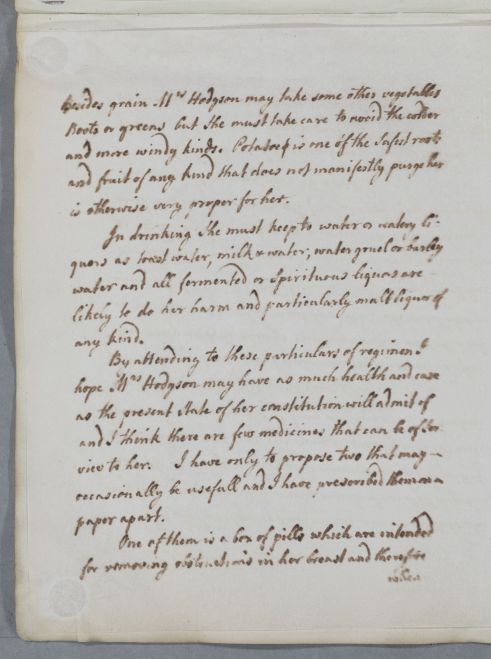 Besides grain Mrs Hodgson may take some other vegetables
Roots or greens but she must take care to avoid the colder
and more windy kinds. Potatoes is one of the safest roots
and fruit of any kind that does not manifestly purge her
is otherwise very proper for her.
In drinking she must keep to water or watery li-
quors as toast water, milk & water, water gruel or barley
water and all fermented or Spirituous liquors are
likely to do her harm and particularly malt liquor of
any kind.
By attending to these particulars of regimen I
hope Mrs Hodgson may have as much health and ease
as the present State of her constitution will admit of
and I think there are few medicines that can be of Ser-
vice to her. I have only to propose two that may
occasionally be usefull and I have prescribed them on a
paper apart.
One of them is a box of pills which are intended
for removing obstructions in her breast and therefore
when